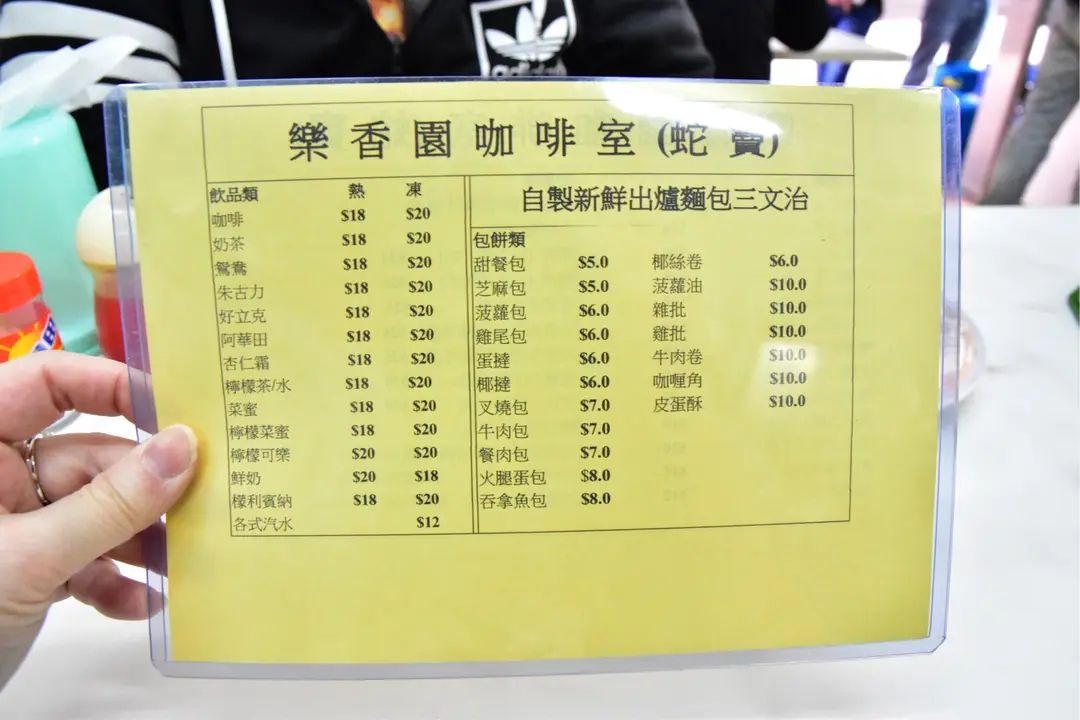 adidas
樂香園咖啡室(蛇竇)
飲品類 熱 凍
咖啡 $18 $20
奶茶 $18 $20
鴛鴦 $18 $20
朱古力 $18 $20
好立克 $18 $20
阿華田 $18 $20
杏仁霜 $18 $20
檸檬茶/水 $18 $20
菜蜜 $18 $20
檸檬菜蜜 $18 $20
檸檬可樂 $20 $20
鮮奶 $20 $18
檬利賓納 $18 $20
各式汽水 $12
自製新鮮出爐麵包三文治
包餅類
甜餐包 $5.0 椰絲卷 $6.0
芝麻包 $5.0 菠蘿油 $10.0
菠蘿包 $6.0 雜批 $10.0
雞尾包 $6.0 雞批 $10.0
蛋撻 $6.0 牛肉卷 $10.0
椰撻 $6.0 咖喱角 $10.0
叉燒包 $7.0 皮蛋酥 $10.0
牛肉包 $7.0
餐肉包 $7.0
火腿蛋包 $8.0
吞拿魚包 $8.0